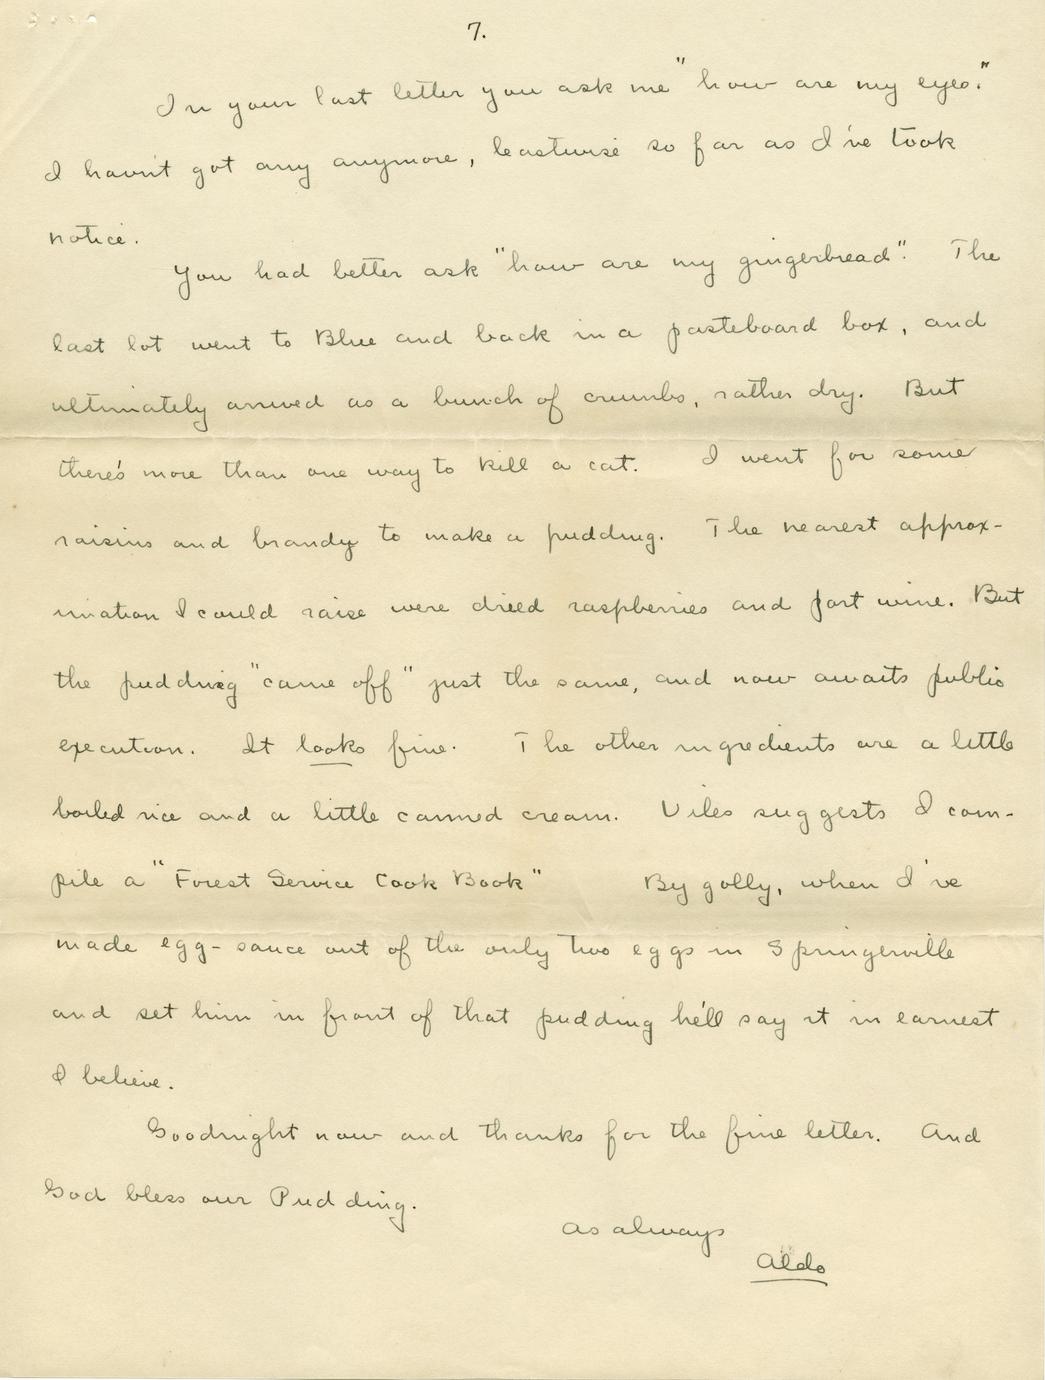 7.
In your last letter you ask me "how are my eyes."
I havn't got any anymore, leastwise so far as I've took
notice.
You had better ask "how are my gingerbread". The
last lot went to Blue and back in a pasteboard box, and
ultimately arrived as a bunch of crumbs, rather dry. But
there's more than one way to kill a cat. I went for some
raisins and brandy to make a pudding. The nearest approx-
imation I could raise were dried raspberries and port wine. But
the pudding "came off" just the same, and now awaits public
execution. It looks fine. The other ingredients are a little
boiled rice and a little canned cream. Viles suggests I com-
pile a "Forest Service Cook Book" By golly, when I've
made egg-sauce out of the only two eggs in Springerville
and set him in front of that pudding he'll say it in earnest
I believe.
Goodnight now and thanks for the fine letter. And
God bless our Pudding.
As always
Aldo